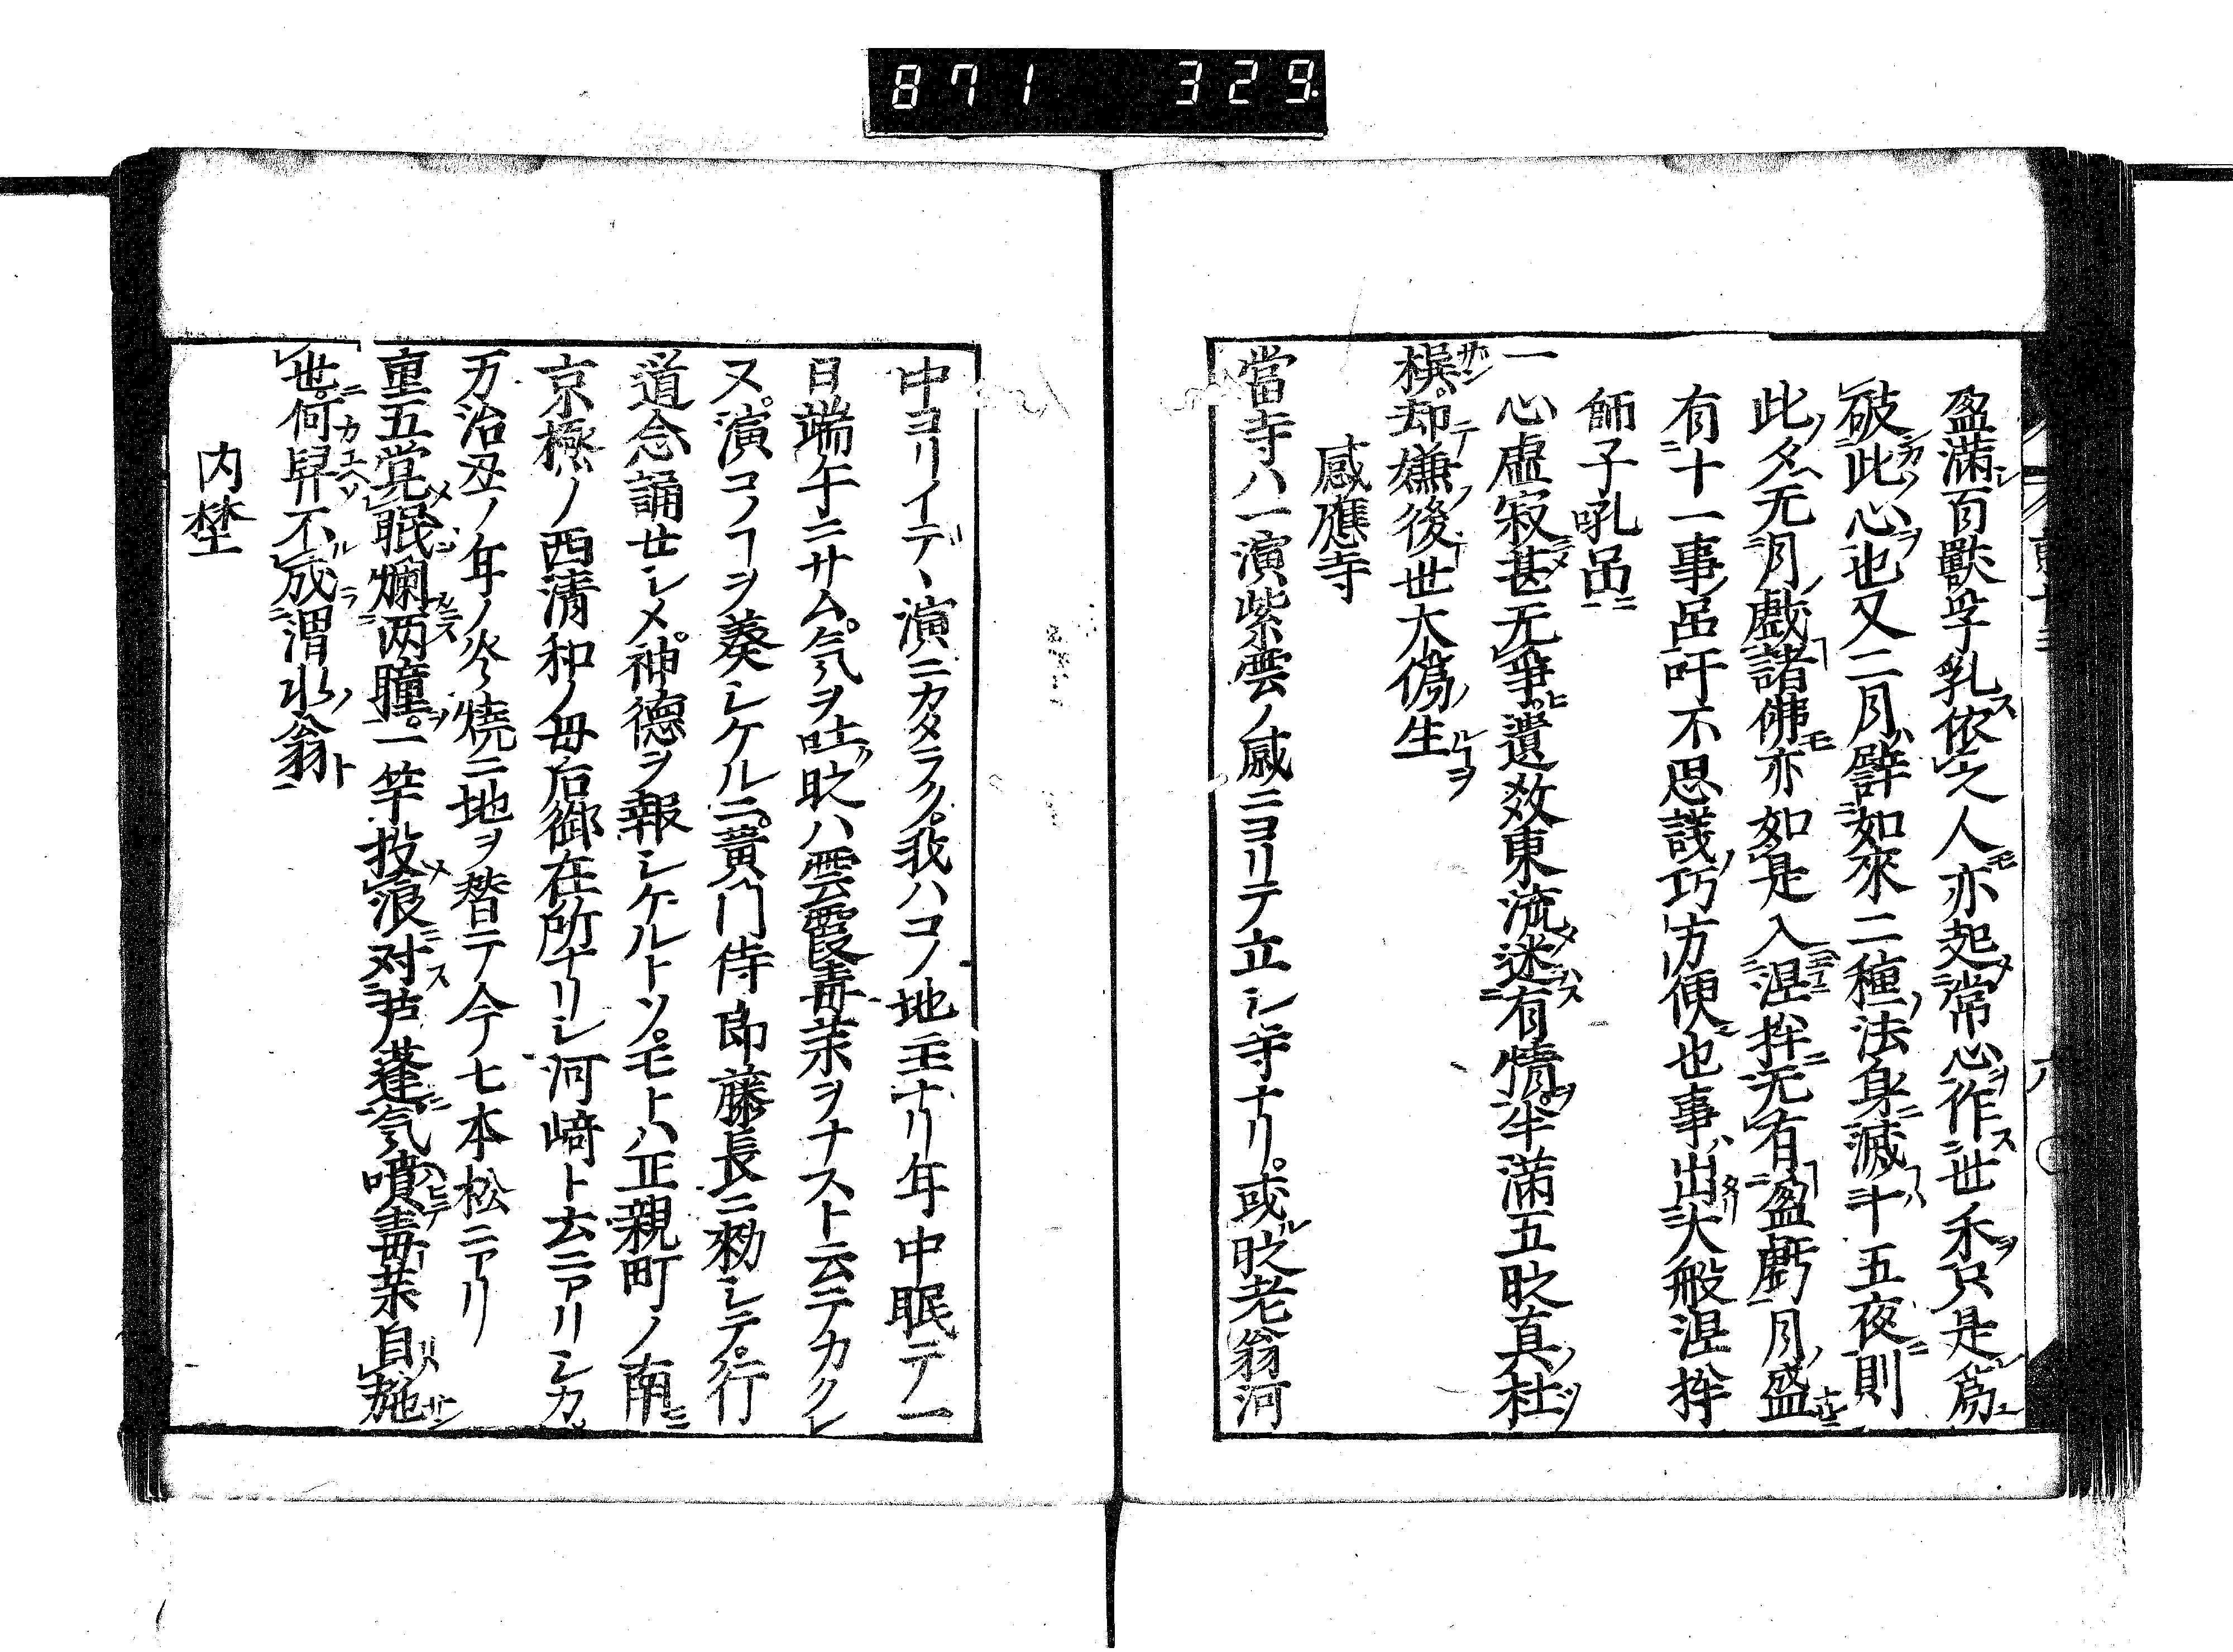 871 329.
盈滿百獸孚乳依之人亦起常心作世禾只是爲
破此心也又二月譬如來二種法身滅十五夜則
此夕无月戲諸佛亦如是入涅拌无有盈虧月盛
有十一事呂吁不思議巧方便也事出大般涅拌
師子吼品
一心虛寂甚无爭遺敎東流迷有情半滿五時真杜
撰却嫌後世大僞生
感應寺
當寺ハ一演紫雲ノ感ニヨリテ立シ寺ナリ或時老翁河
中ヨリイデヽ演ニカタラク我ハコノ地主ナリ年中眠テノ一
日端午ニサム気ヲ吐時ハ雲霞毒茉ヲナスト云テカクレ
ヌ演コノヿヲ奏シケルニ黄門侍郎藤長ニ勅シテ行
道念誦せシメ神德ヲ報シケルトソモトハ正親町ノ南
京極ノ西清和ノ母后御在所ナリシ河﨑ト云ニアリシカ
万治丑ノ年ノ炎燒ニ地ヲ替テ今七本松ニアリ
重五覚眠爛两瞳一竿投浪对芦蓬気噴毒茉自施
世何昇不成渭水翁
内埜